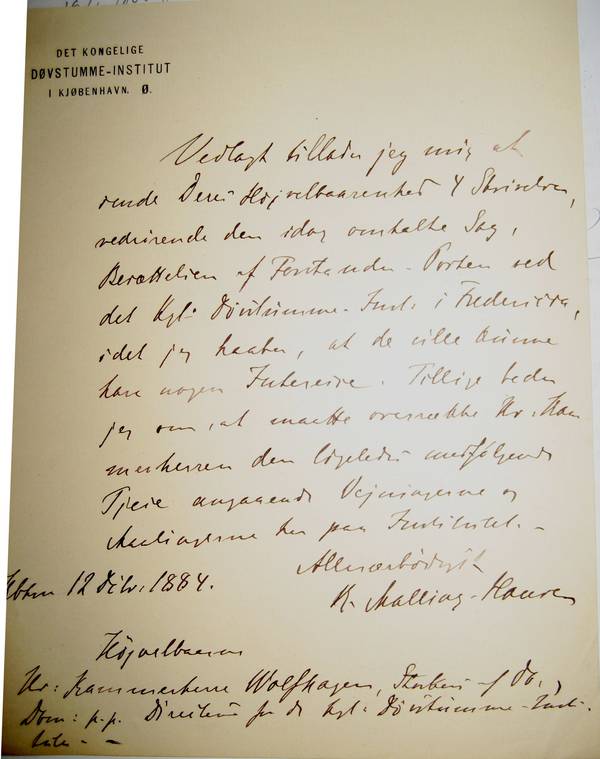 DET KONGELIGE
DØVSTUMME-INSTITUT
I KJØBENHAVN. Ø.
Vedlagt tillader jeg mig at
sende Deres Højvelbaarenhed 4 Skrivelser,
vedrørende den idag omtalte Sag,
af Forstander-Posten ved
det Kgl: Døvstumme-Inst: i Fredericia,
idet jeg haaber, at de ville kunne
have nogen Interesse. Tillige beder
jeg om, at maatte overrække Hr. Kam
merherren den ligeledes medfølgende
angaaende Vejningerne og
Maalingerne her paa Institutet. -
Allerærbødigst
R. Malling-Hansen
Kbhvn 12 1884.
Højvelbaarne
Hr: Kammerherre Wolfhagen, af D.,
Dom: p.p. Directeur for de Kgl: Døvstumme-Insti-
tuter - -